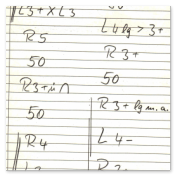 L3+XL3
R5
50
R3+
50
R4
L4lg>3+
R3+
50
R3+lgm.a.
L4-